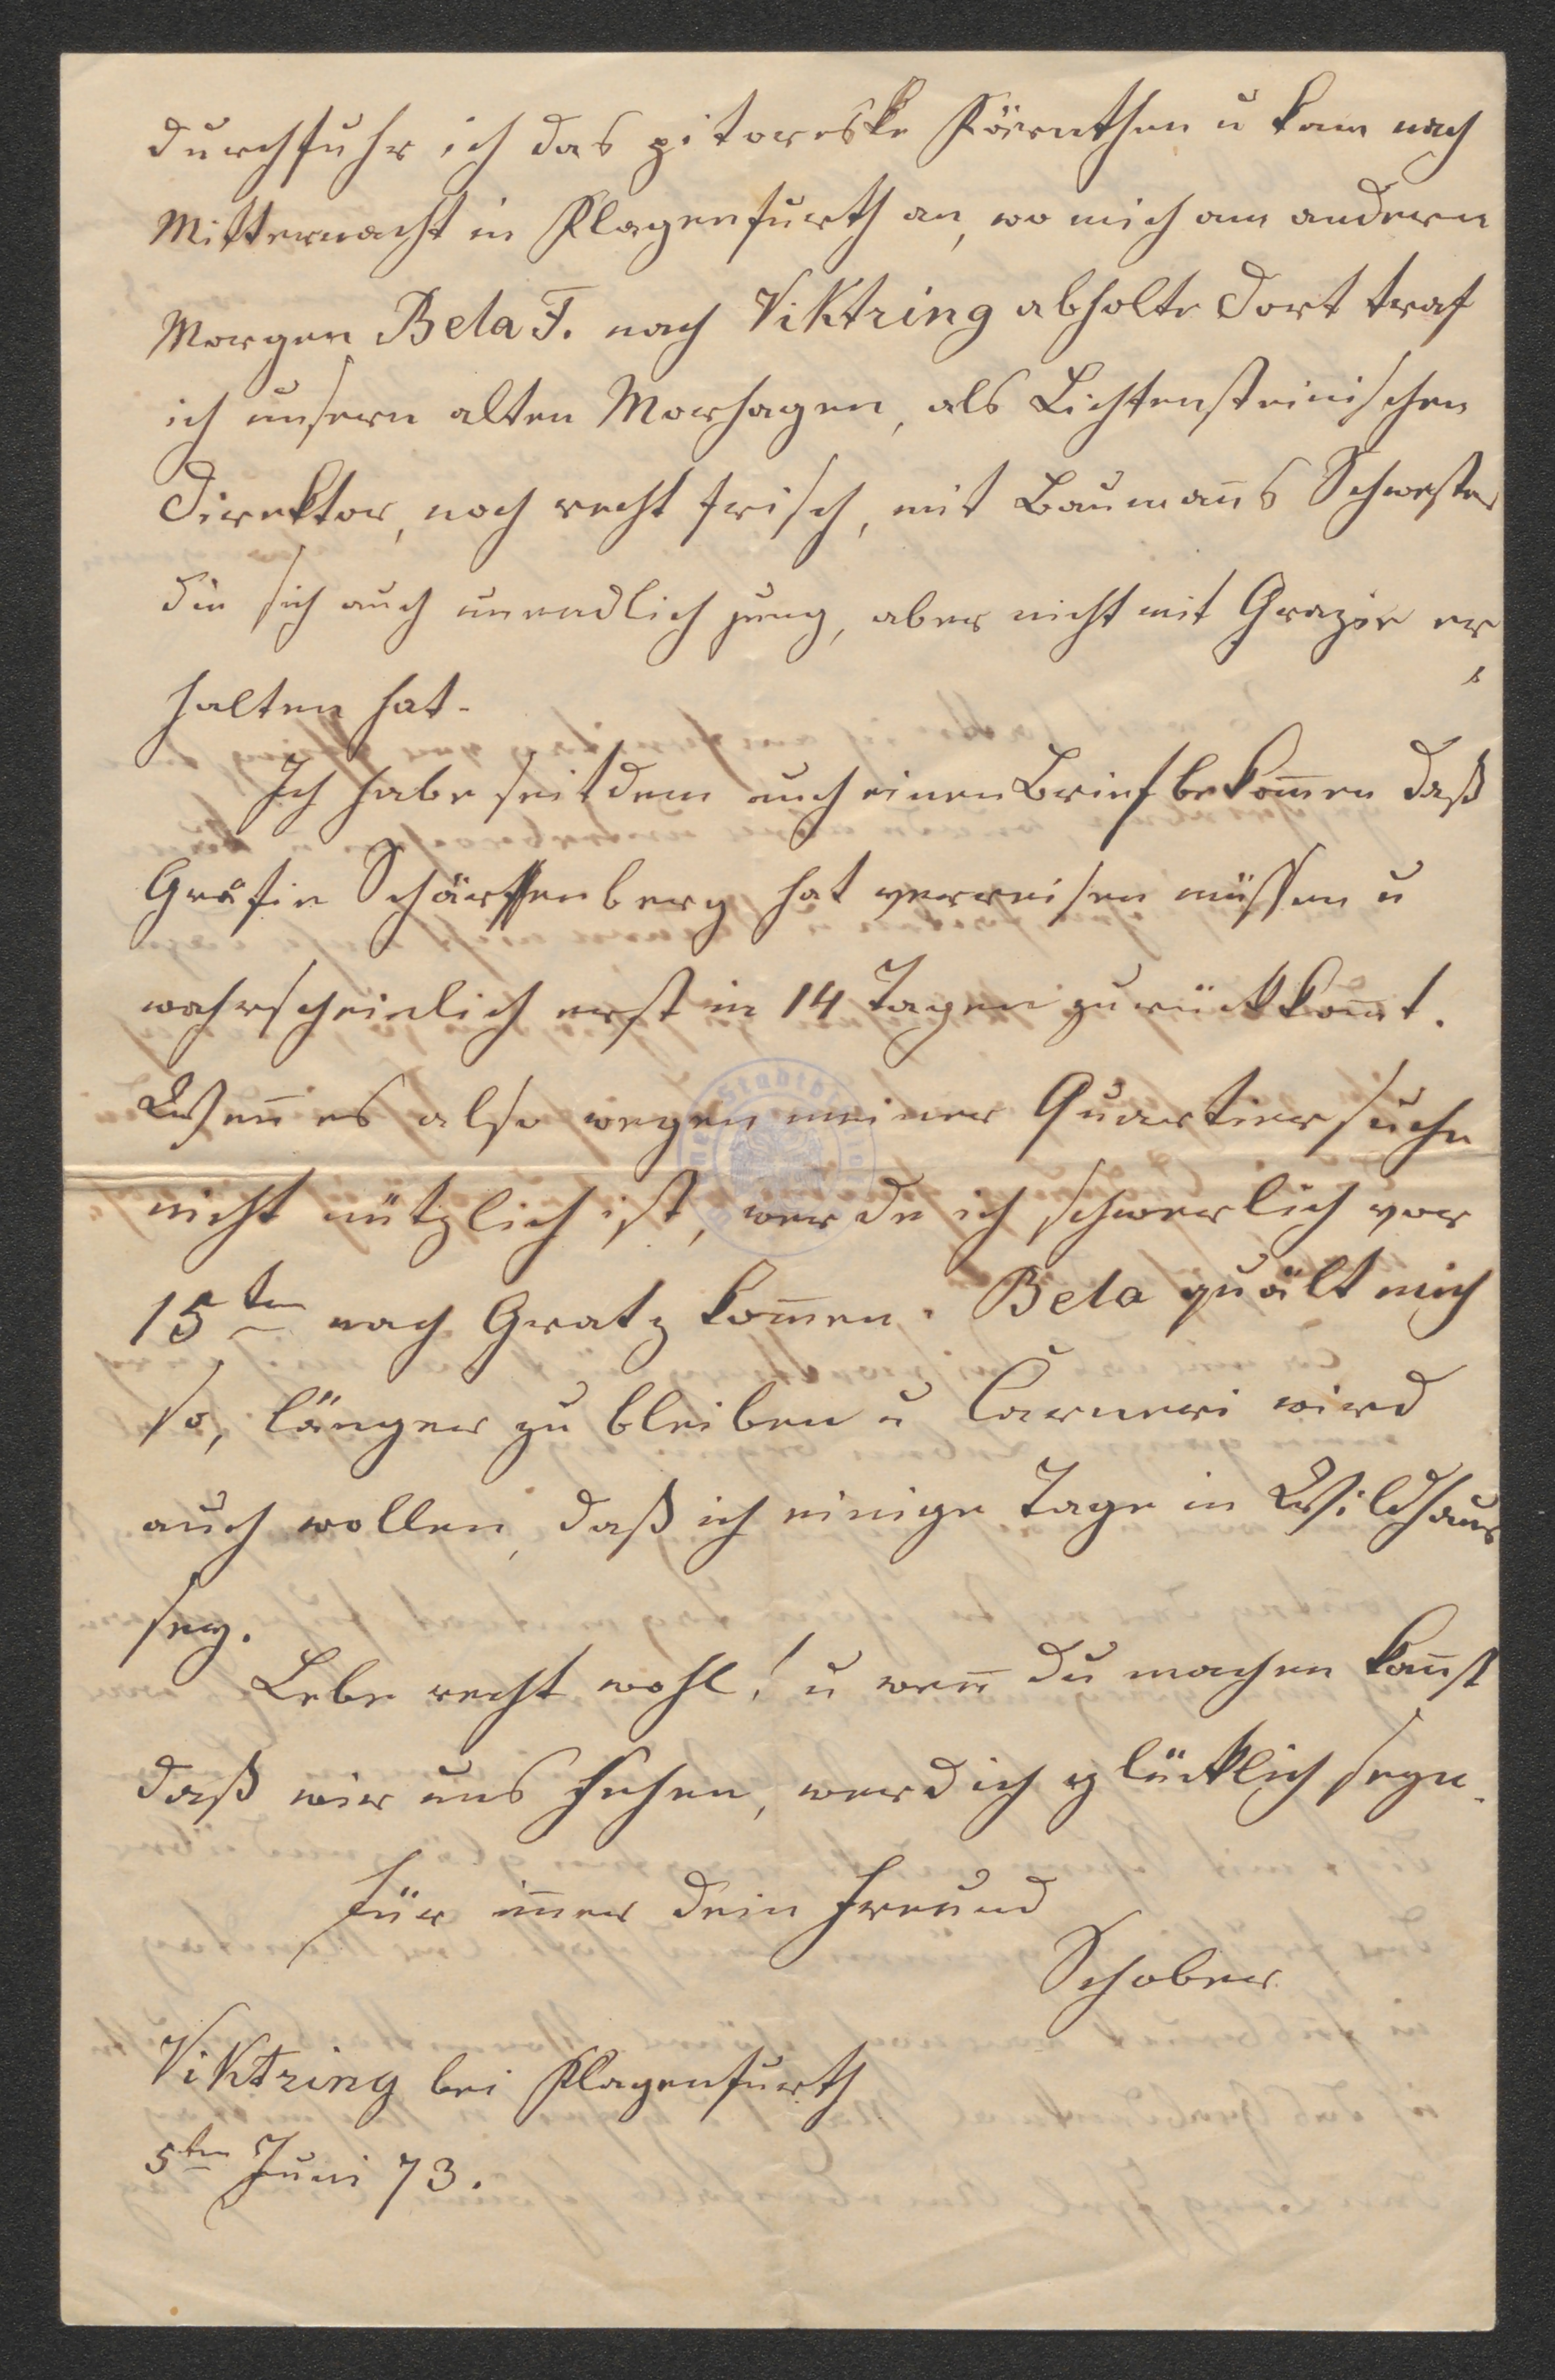 durchfuhr ich das pitoreske Kärnthen u kam nach
Mitternacht in Klagenfurth an, wo mich am andern
Morgen Bela F. nach Viktring abholte Dort traf
ich unsern alten Morhagen, als Lichtensteinischen
Direktor, noch recht frisch, mit Bauman̄s Schwester
die sich auch unendlich jung, aber nicht mit Grazie er
halten hat.
Ich habe seitdem auch einen Brief bekom̄en daß
Gräfin Schärffenberg hat verreisen müssen u
wahrscheinlich erst in 14 Tagen zurückkom̄t.
Wen̄ es also wegen meiner Quartiersuche
nicht nützlich ist, werde ich schwerlich vor
15ten nach Gratz kom̄en. Bela quält mich
so, länger zu bleiben u Carneri wird
auch wollen, daß ich einige Tage in Wildhaus
sey.
Lebe recht wohl! u wen̄ du machen kan̄st
daß wir uns sehen, werd ich glücklich seyn.
Für im̄er dein Freund
Schober
Viktring bei Klagenfurth
5ten Juni 73.